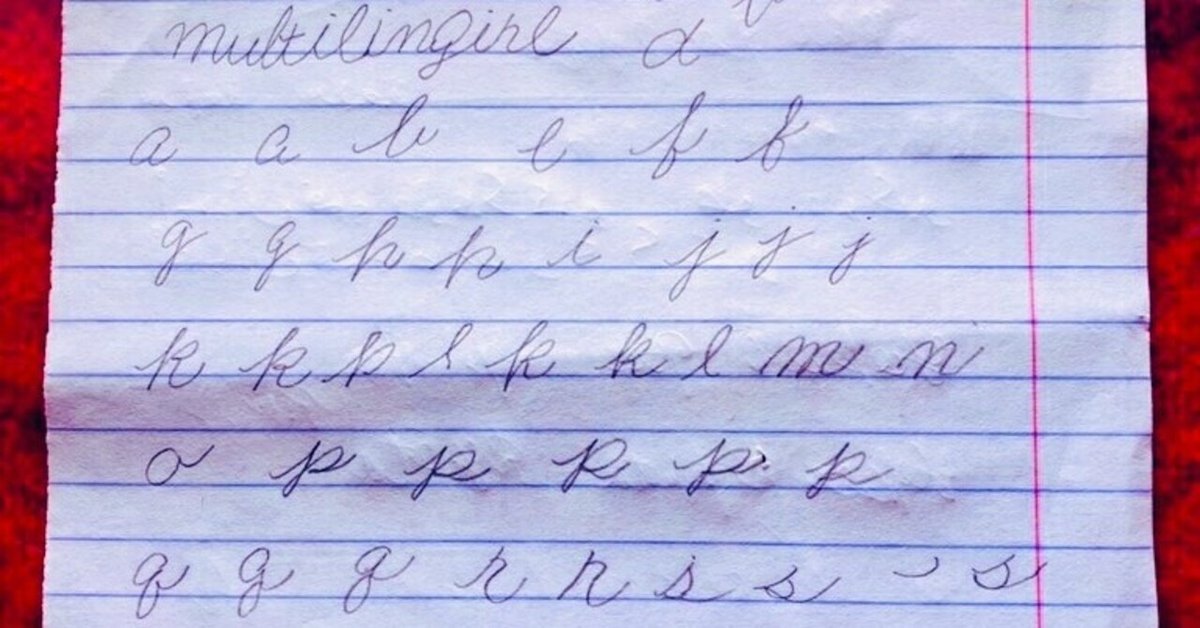 multilingirl a
a a b e f f
g g h h i j j j
k k p l k k l m n
o p p p p p
q g g r r s s s